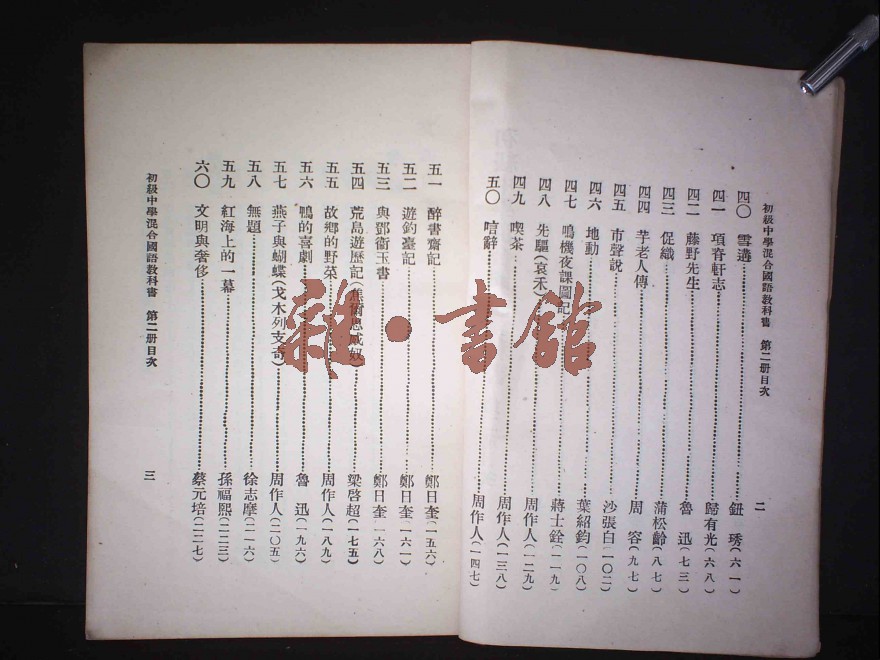 初級中學混合國語教科書　第二册目次　二
四〇　雪遘………鈕　琇(六一)
四一　項脊軒志………歸有光(六八)
四二　藤野先生………魯　迅(七三)
四三　促織………蒲松齡(八七)
四四　芋老人傳………周　容(九七)
四五　市聲說………沙張白(一〇二)
四六　地動………葉紹鈞(一〇八)
四七　鳴機夜課圖記………蔣士銓(一一九)
四八　先驅(哀禾)………周作人(一二九)
四九　喫茶………周作人(一三八)
五〇　唁辭………周作人(一四七)
五一　醉書齋記………鄭日奎(一五六)
五二　遊釣臺記………鄭日奎(一六一)
五三　與鄧衞玉書………鄭日奎(一六八)
五四　荒島遊歷記(焦爾思威奴)………梁啓超(一七五)
五五　故鄉的野菜………周作人(一八九)
五六　鴨的喜劇………魯　迅(一九六)
五七　燕子與蝴蝶(戈木列支奇)………周作人(二〇五)
五八　無題………徐志摩(二一六)
五九　紅海上的一幕………孫福熙(二二三)
六〇　文明與奢侈………蔡元培(二二七)
初級中學混合國語教科書　第二册目次　三
雜·書館